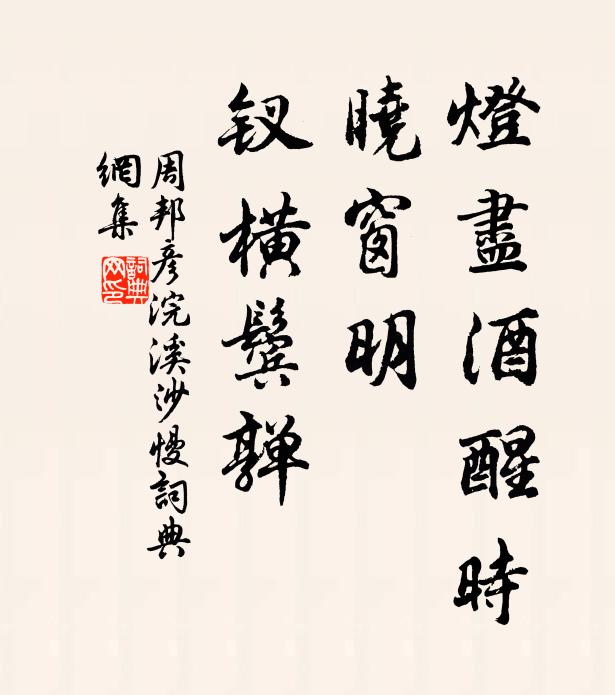 燈盡酒醒時
曉窗明
釵橫鬢嚲
周邦彥浣溪沙慢詞典
網集
詞典網印